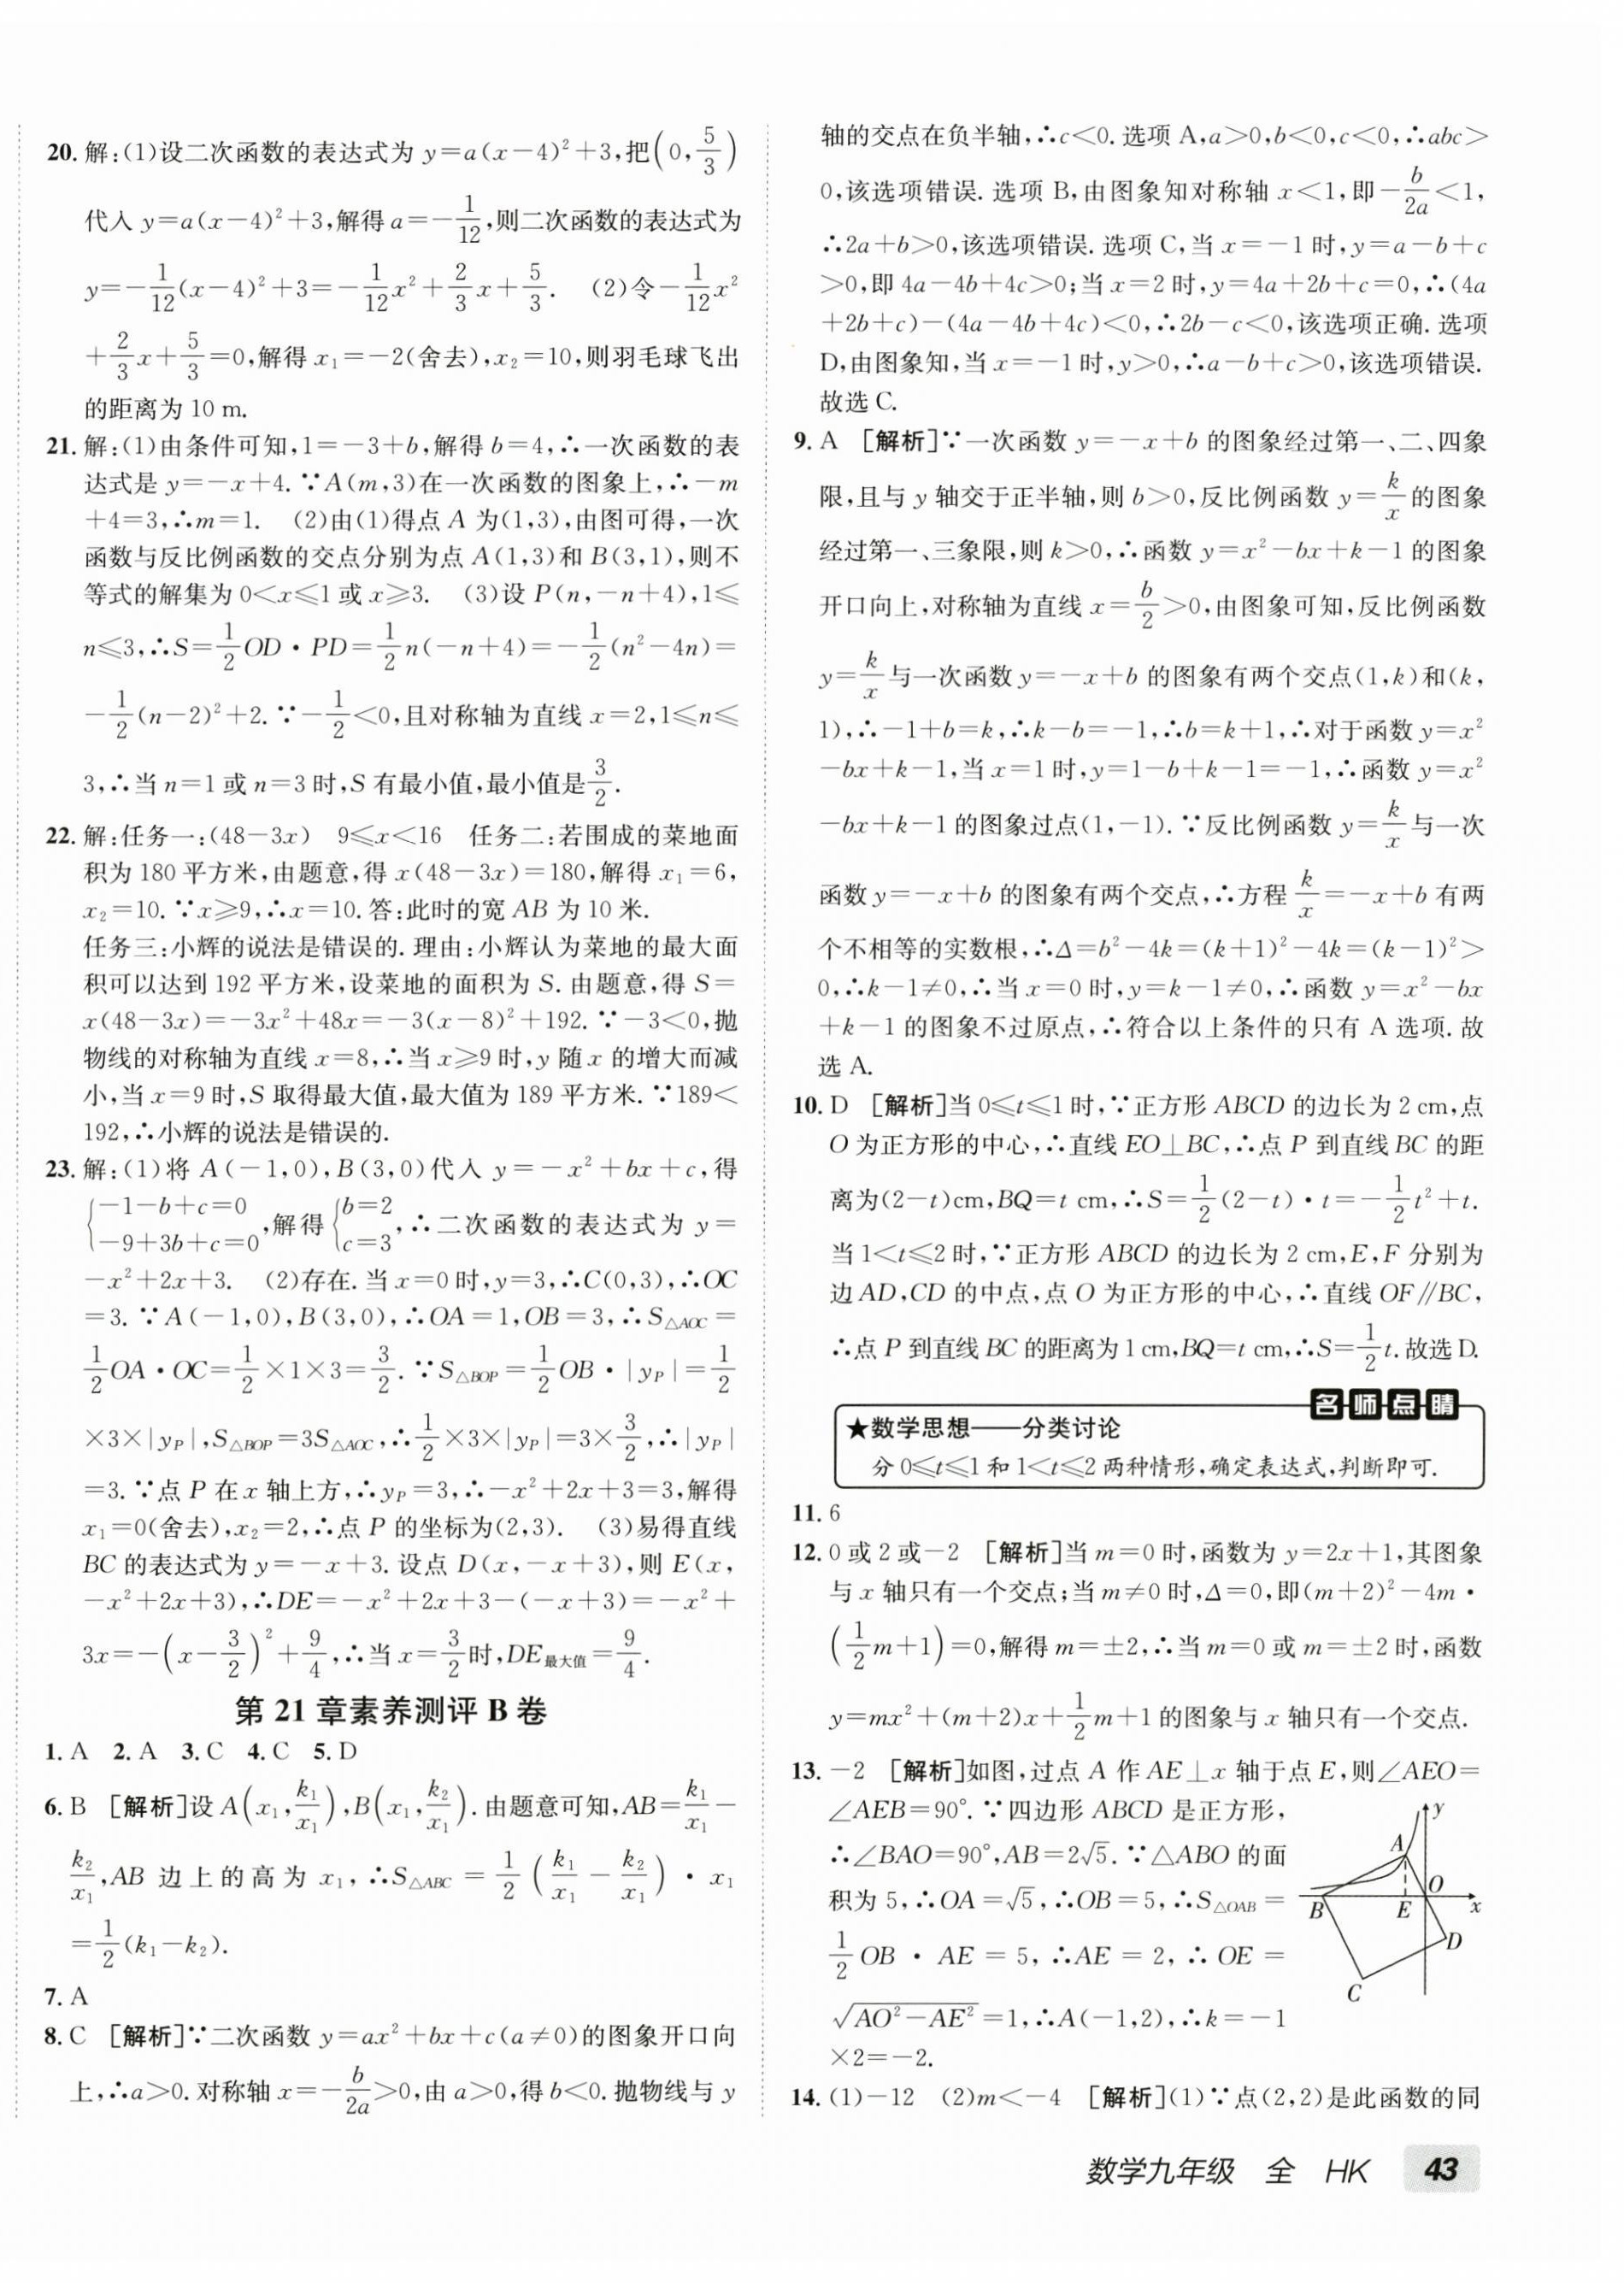 20. 解:(1)设二次函数的表达式为 y=a(x-4)²+3,把(0,5/3)
代入 y=a(x-4)²+3,解得 a=-1/12,则二次函数的表达式为
y=-1/12(x-4)²+3=-1/12x²+2/3x+5/3. (2)令-1/12x²
+2/3x+5/3=0,解得 x₁=-2(舍去),x₂=10,则羽毛球飞出
的距离为 10 m.
21. 解:(1)由条件可知,1=-3+b,解得 b=4,∴一次函数的表
达式是 y=-x+4. ∵A(m,3)在一次函数的图象上,∴-m
+4=3,∴m=1. (2)由(1)得点 A 为(1,3),由图可得,一次
函数与反比例函数的交点分别为点 A(1,3)和 B(3,1),则不
等式的解集为 0<x≤1 或 x≥3. (3)设 P(n,-n+4),1≤
n≤3,∴S=1/2OD·PD=1/2n(-n+4)=-1/2(n²-4n)=
-1/2(n-2)²+2. ∵-1/2<0,且对称轴为直线 x=2,1≤n≤
3,∴当 n=1 或 n=3 时,S 有最小值,最小值是3/2.
22. 解:任务一:(48-3x) 9≤x<16 任务二:若围成的菜地面
积为 180 平方米,由题意,得 x(48-3x)=180,解得 x₁=6,
x₂=10. ∵x≥9,∴x=10. 答:此时的宽 AB 为 10 米.
任务三:小辉的说法是错误的. 理由:小辉认为菜地的最大面
积可以达到 192 平方米,设菜地的面积为 S. 由题意,得 S=
x(48-3x)=-3x²+48x=-3(x-8)²+192. ∵-3<0,抛
物线的对称轴为直线 x=8,∴当 x≥9 时,y 随 x 的增大而减
小,当 x=9 时,S 取得最大值,最大值为 189 平方米. ∵189<
192,∴小辉的说法是错误的.
23. 解:(1)将 A(-1,0),B(3,0)代入 y=-x²+bx+c,得
{-1-b+c=0 -9+3b+c=0,解得{b=2 c=3,∴二次函数的表达式为 y=
-x²+2x+3. (2)存在. 当 x=0 时,y=3,∴C(0,3),∴OC
=3. ∵A(-1,0),B(3,0),∴OA=1,OB=3,∴S△AOC=
1/2OA·OC=1/2×1×3=3/2. ∵S△BOP=1/2OB·|yP|=1/2
×3×|yP|,S△BOP=3S△AOC,∴1/2×3×|yP|=3×3/2,∴|yP|
=3. ∵点 P 在 x 轴上方,∴yP=3,∴-x²+2x+3=3,解得
x₁=0(舍去),x₂=2,∴点 P 的坐标为(2,3). (3)易得直线
BC 的表达式为 y=-x+3. 设点 D(x,-x+3),则 E(x,
-x²+2x+3),∴DE=-x²+2x+3-(-x+3)=-x²+
3x=-(x-3/2)²+9/4,∴当 x=3/2时,DE最大值=9/4.
第 21 章素养测评 B 卷
1. A 2. A 3. C 4. C 5. D
6. B [解析]设 A(x₁,k₁/x₁),B(x₁,k₂/x₁). 由题意可知,AB=k₁/x₁-
k₂/x₁,AB 边上的高为 x₁,∴S△ABC=1/2(k₁/x₁-k₂/x₁)·x₁
=1/2(k₁-k₂).
7. A
8. C [解析]∵二次函数 y=ax²+bx+c(a≠0)的图象开口向
上,∴a>0. 对称轴 x=-b/2a>0,由 a>0,得 b<0. 抛物线与 y
轴的交点在负半轴,∴c<0. 选项 A,a>0,b<0,c<0,∴abc>
0,该选项错误. 选项 B,由图象知对称轴 x<1,即-b/2a<1,
∴2a+b>0,该选项错误. 选项 C,当 x=-1 时,y=a-b+c
>0,即 4a-4b+4c>0;当 x=2 时,y=4a+2b+c=0,∴(4a
+2b+c)-(4a-4b+4c)<0,∴2b-c<0,该选项正确. 选项
D,由图象知,当 x=-1 时,y>0,∴a-b+c>0,该选项错误.
故选 C.
9. A [解析]∵一次函数 y=-x+b 的图象经过第一、二、四象
限,且与 y 轴交于正半轴,则 b>0,反比例函数 y=k/x的图象
经过第一、三象限,则 k>0,∴函数 y=x²-bx+k-1 的图象
开口向上,对称轴为直线 x=b/2>0,由图象可知,反比例函数
y=k/x与一次函数 y=-x+b 的图象有两个交点(1,k)和(k,
1),∴-1+b=k,∴k-b=-1,∴b=k+1,∴对于函数 y=x²
-bx+k-1,当 x=1 时,y=1-b+k-1=-1,∴函数 y=x²
-bx+k-1 的图象过点(1,-1). ∵反比例函数 y=k/x与一次
函数 y=-x+b 的图象有两个交点,∴方程 k/x=-x+b 有两
个不相等的实数根,∴Δ=b²-4k=(k+1)²-4k=(k-1)²>
0,∴k-1≠0,∴当 x=0 时,y=k-1≠0,∴函数 y=x²-bx
+k-1 的图象不过原点,∴符合以上条件的只有 A 选项. 故
选 A.
10. D [解析]当 0≤t≤1 时,∵正方形 ABCD 的边长为 2 cm,点
O 为正方形的中心,∴直线 EO⊥BC,∴点 P 到直线 BC 的距
离为(2-t)cm,BQ=t cm,∴S=1/2(2-t)·t=-1/2t²+t.
当 1<t≤2 时,∵正方形 ABCD 的边长为 2 cm,E,F 分别为
边 AD,CD 的中点,点 O 为正方形的中心,∴直线 OF∥BC,
∴点 P 到直线 BC 的距离为 1 cm,BQ=t cm,∴S=1/2t. 故选 D.
名师点睛
★数学思想——分类讨论
分 0≤t≤1 和 1<t≤2 两种情形,确定表达式,判断即可.
11. 6
12. 0 或 2 或-2 [解析]当 m=0 时,函数为 y=2x+1,其图象
与 x 轴只有一个交点;当 m≠0 时,Δ=0,即(m+2)²-4m·
(1/2m+1)=0,解得 m=±2,∴当 m=0 或 m=±2 时,函数
y=mx²+(m+2)x+1/2m+1 的图象与 x 轴只有一个交点.
13. -2 [解析]如图,过点 A 作 AE⊥x 轴于点 E,则∠AEO=
∠AEB=90°. ∵四边形 ABCD 是正方形,
∴∠BAO=90°,AB=2√5. ∵△ABO 的面
积为 5,∴OA=√5,∴OB=5,∴S△OAB=
1/2OB·AE=5,∴AE=2,∴OE=
√AO²-AE²=1,∴A(-1,2),∴k=-1
×2=-2.
y
A
O
B
E
x
D
C
14. (1)-12 (2)m<-4 [解析](1)∵点(2,2)是此函数的同
数学九年级 全 HK 43